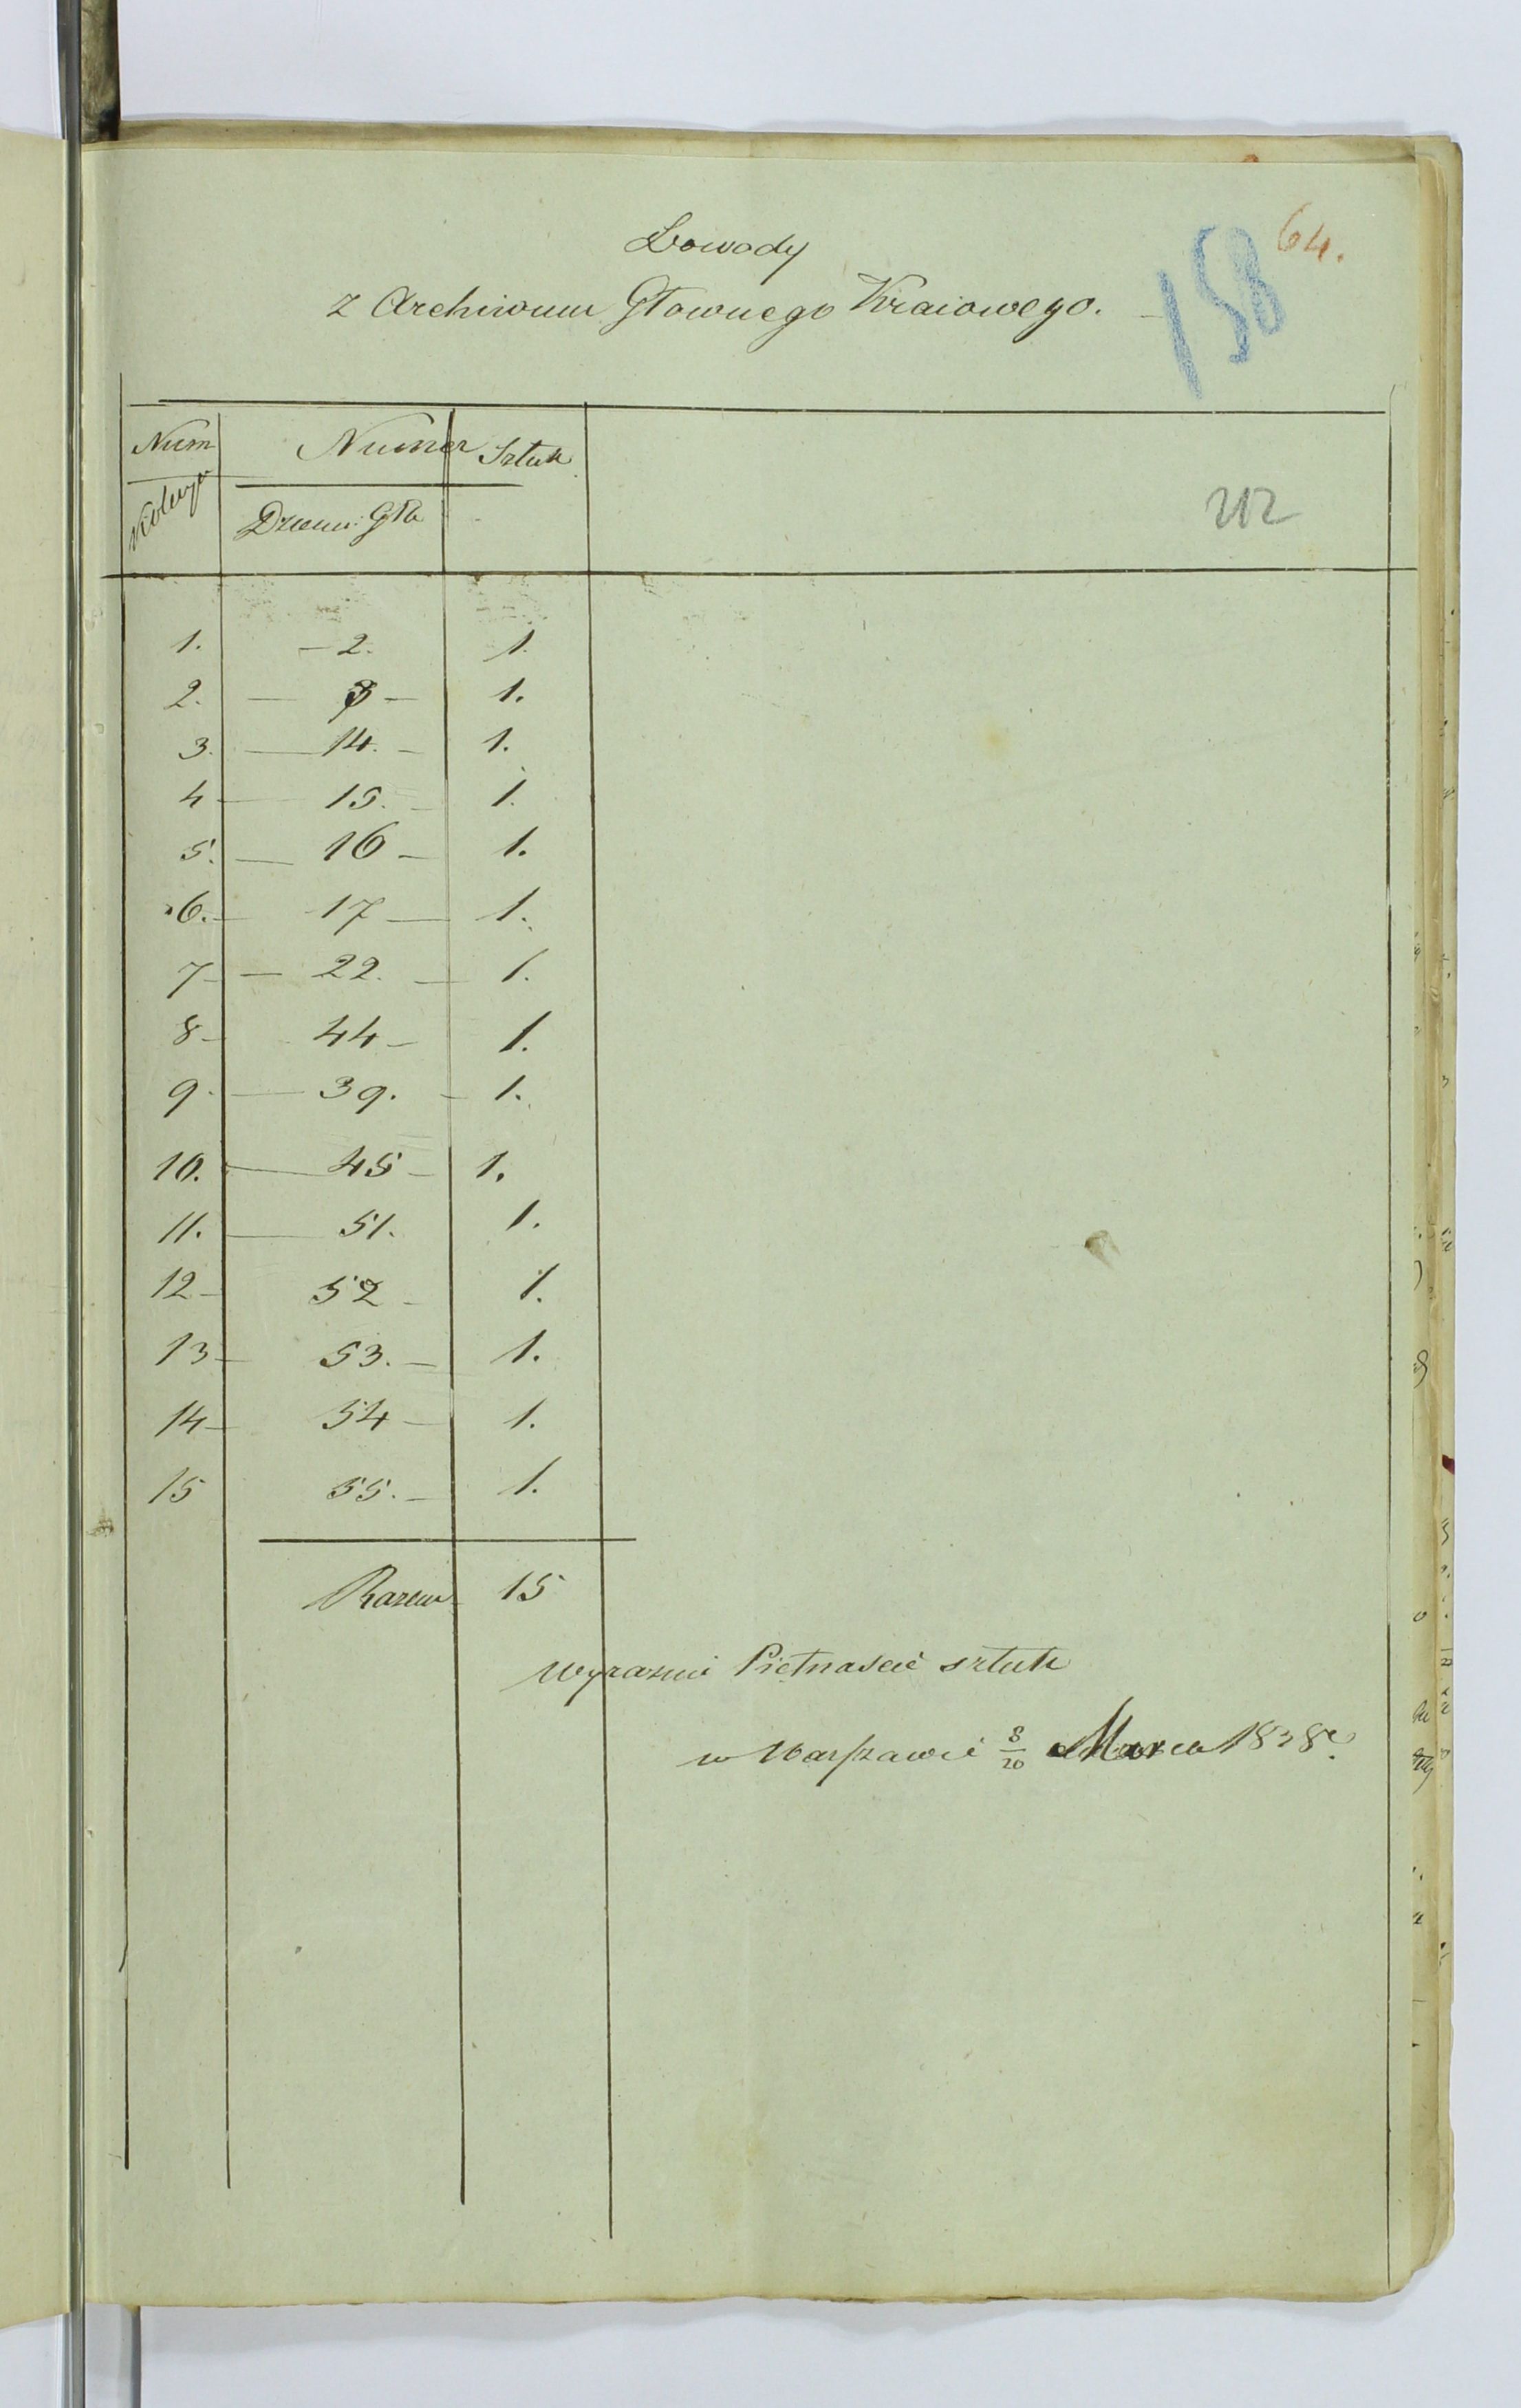 64.
158
Dowody
z Archiwum Głownego Kraiowego.
Num Numer Sztuk
Koleyn Dzien: Gł
212
1. — 2. 1.
2. — — 1.
3. — 14. — 1.
4 — 15. — 1.
5. — 16 — 1.
6. — 17 — 1.
7 — 22. — 1.
8 — 44 — 1.
9. — 39. — 1.
10. — 45 — 1.
11. — 51. 1.
12 — 52 — 1.
13 — 53. — 1.
14 — 54 — 1.
15 55. — 1.
Razem 15
Wyraznie Piętnascie sztuk
w Warszawie 8/20 Marca 1838 r.